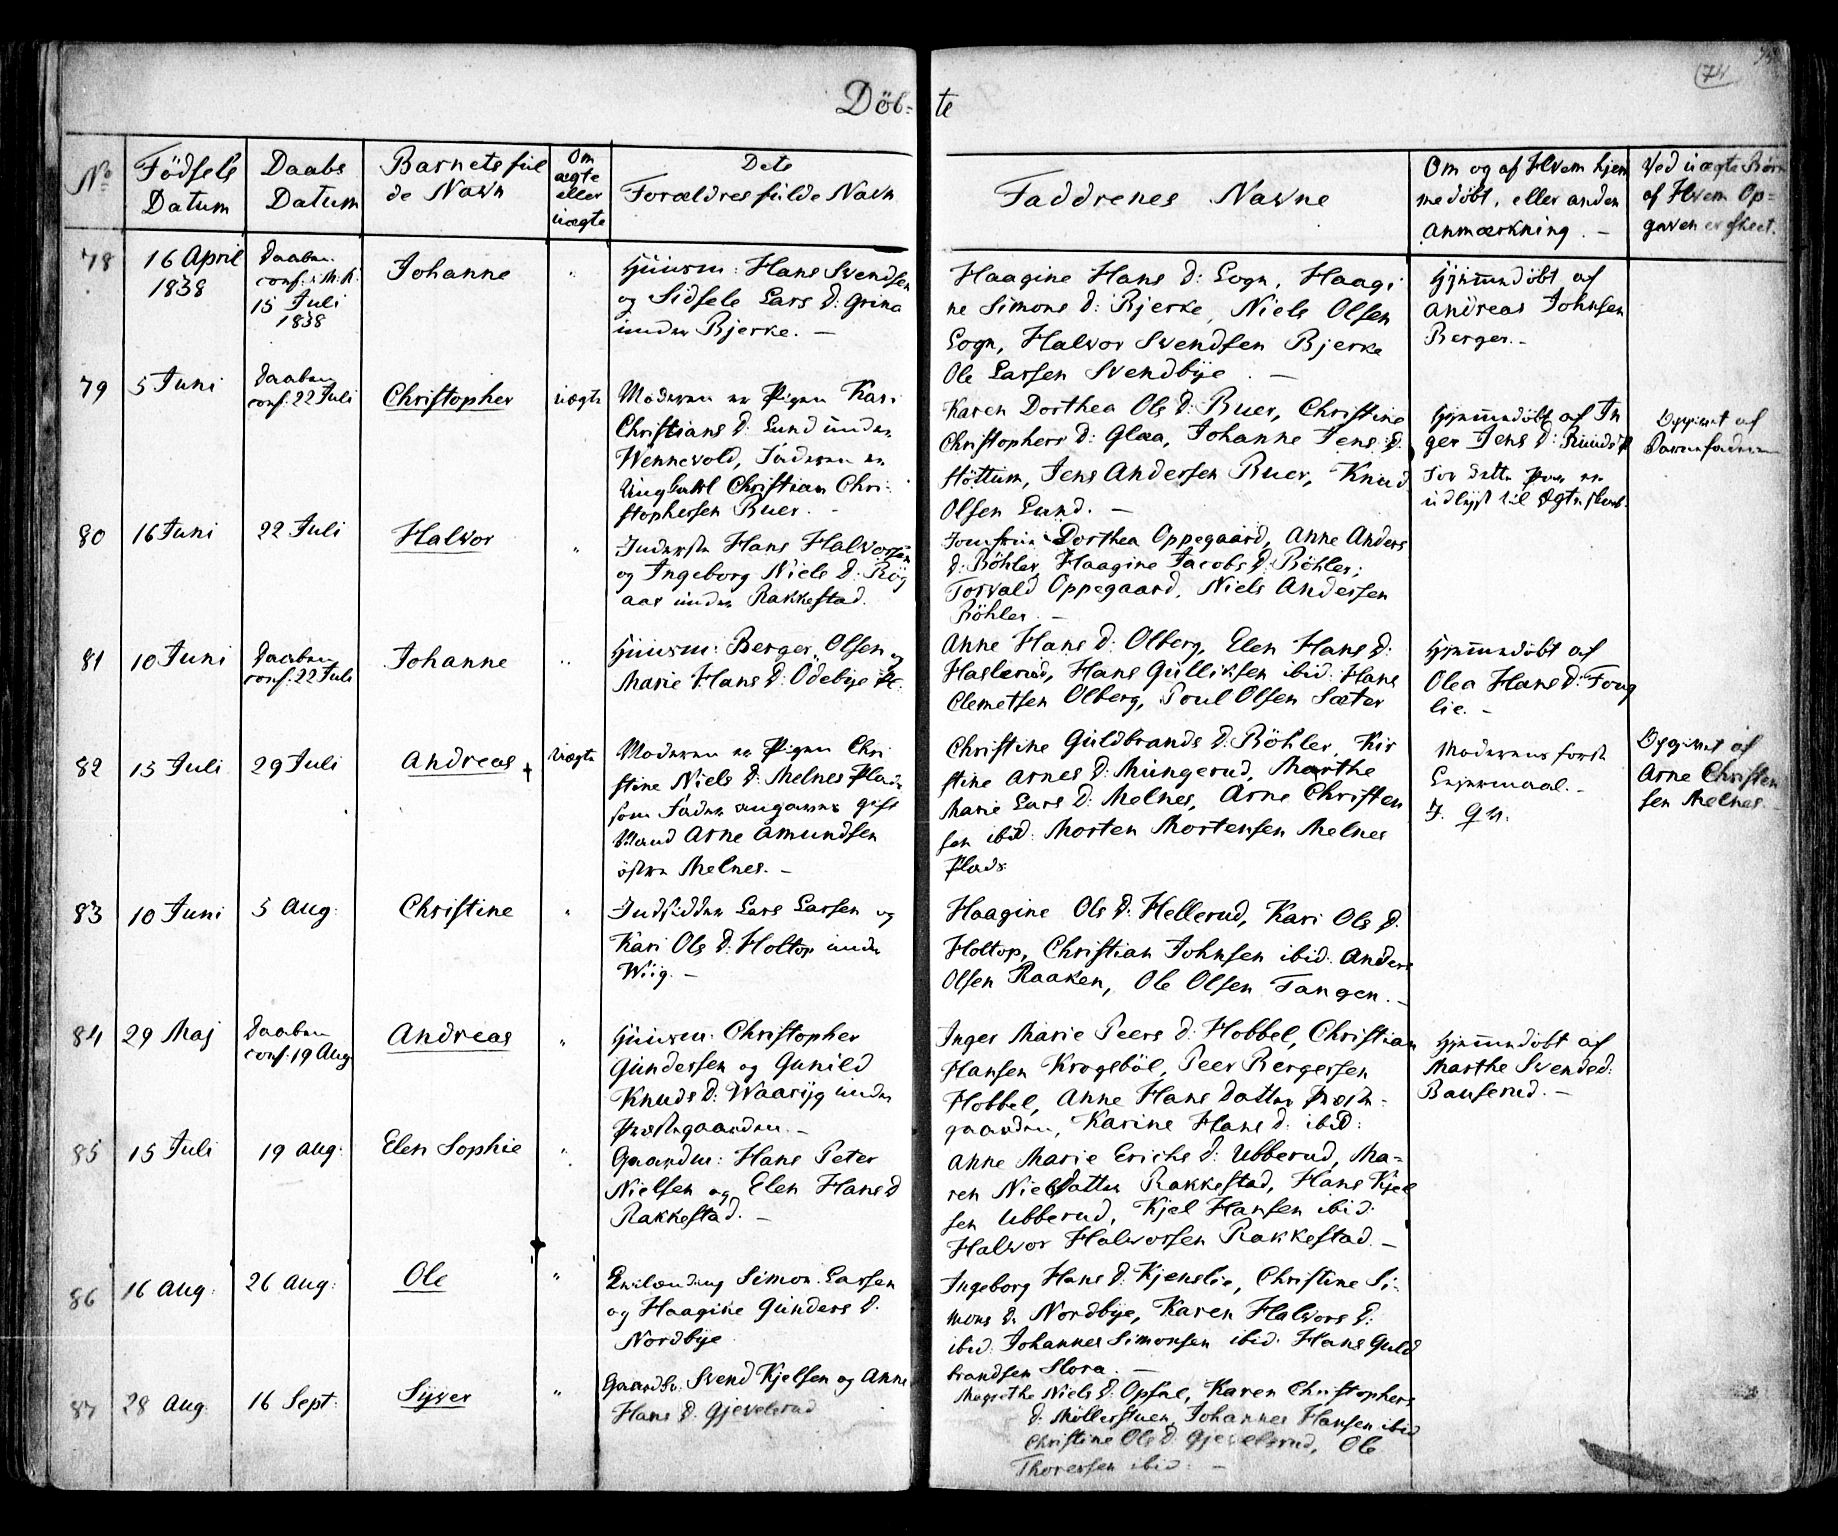 Döb-
te
74
No
Födsels
Datum
Daabs
Datum
Barnets ful
de Navn
Om
ægte
eller
uægte
Dets
Forældres fulde Navn
Faddrenes Navne
Om og af Hvem hjem
medöbt, eller anden
Anmærkning. -
Ved uægte Börn
af Hvem Op-
gaven er skeet.
78
16 April
1838
Daaben
conf. i M. K.
15 Juli
1838
Johanne
"
Huusm: Hans Svendsen
og Sidsele Lars D: Grina
under Bjerke. -
Haagine Hans D: Sogn, Haagi
ne Simons D: Bjerke, Niels Olsen
Sogn, Halvor Svendsen Bjerke
Ole Larsen Svendbye. -
Hjemmedöbt af
Andreas Johnsen
Berger. -
79
5 Juni
Daaben
conf. 22 Juli
Christopher
uægte
Moderen er Pigen Kari
Christians D: Lund under
Wennevold, Faderen er
Ungkarl Christian Chri-
stophersen Buer. -
Karen Dorthea Ols D: Buer, Christine
Christophers D: Glaa, Johanne Jens D:
Höttum, Jens Andersen Buer, Knud
Olsen Lund. -
Hjemmedöbt af In
ger Jens D: Rund
For dette Par er
udlyst til Ægteskab.
Opgivet af
Barnefaderen
80
16 Juni
22 Juli
Halvor
"
Inderste Hans Halvorsen
og Ingeborg Niels D: Rög
aas under Rakkestad.
Jomfrue Dorthea Oppegaard, Anne Anders
D: Böhler, Haagine Jacobs D: Böhler;
Torvald Oppegaard, Niels Andersen
Böhler. -
81
10 Juni
Daaben
conf. 22 Juli
Johanne
"
Huusm: Berger Olsen og
Marie Hans D: Odebye
Anne Hans D: Olberg, Elen Hans D:
Haslerud, Hans Gulliksen ibid: Hans
Clemetsen Olberg, Poul Olsen Sæter
Hjemmedöbt af
Olea Hans D: Foug
lie. -
82
15 Juli
29 Juli
Andreas
uægte
Moderen er Pigen Chri
stine Niels D: Melnes Plads
som Fader angaves gift
Mand Arne Amundsen
östre Melnes. -
Christine Guldbrands D: Böhler, Kir
stine Arnes D: Mungerud, Marthe
Marie Lars D: Melnes, Arne Christen
sen ibid: Morten Mortensen Melnes
Plads
Moderens förste
Leiermaal. -
Opgivet af
Arne Christen
sen Melnes.
83
10 Juni
5 Aug:
Christine
"
Indsidder Lars Larsen og
Kari Ols D: Holtop under
Wiig. -
Haagine Ols D: Hellerud, Kari Ols D.
Holtop, Christian Johnsen ibid. Anders
Olsen Raaken, Ole Olsen Tangen. -
84
29 Maj
Daaben
conf. 19 Aug
Andreas
"
Huusm: Christopher
Gundersen og Gunild
Knuds D: Waaryg under
Præstegaarden. -
Inger Marie Peers D: Hobbel, Christian
Hansen Krogsböl, Peer Bergersen
Hobbel, Anne Hans Datter Præste-
gaarden, Karine Hans D: ibid:
Hjemmedöbt af
Marthe Svends D:
Bauserud. -
85
15 Juli
19 Aug:
Elen Sophie
"
Gaardm: Hans Peter
Nielsen og Elen Hans D
Rakkestad. -
Anne Marie Erichs D: Ubberud, Ma-
ren Niels Datter Rakkestad, Hans Kjel
sen Ubberud, Kjel Hansen ibid.
Halvor Halvorsen Rakkestad. -
86
16 Aug:
26 Aug:
Ole
"
Simon Larsen
og Haagine Gunders D.
Nordbye
Ingeborg Hans D: Kjenslie, Christine Si-
mons D. Nordbye, Karen Halvors D:
ibid: Johannes Simonsen ibid. Hans Guld
brandsen Slora. -
87
28 Aug:
16 Sept:
Syver
"
Gaardbr: Svend Kjelsen og Anne
Hans D: Gjevelsrud
Magrethe Niels D: Opsal, Karen Christophers
D: Möllerstuen, Johannes Hansen ibid
Christine Ols D: Gjevelsrud, Ole
Thoresen ibid: -